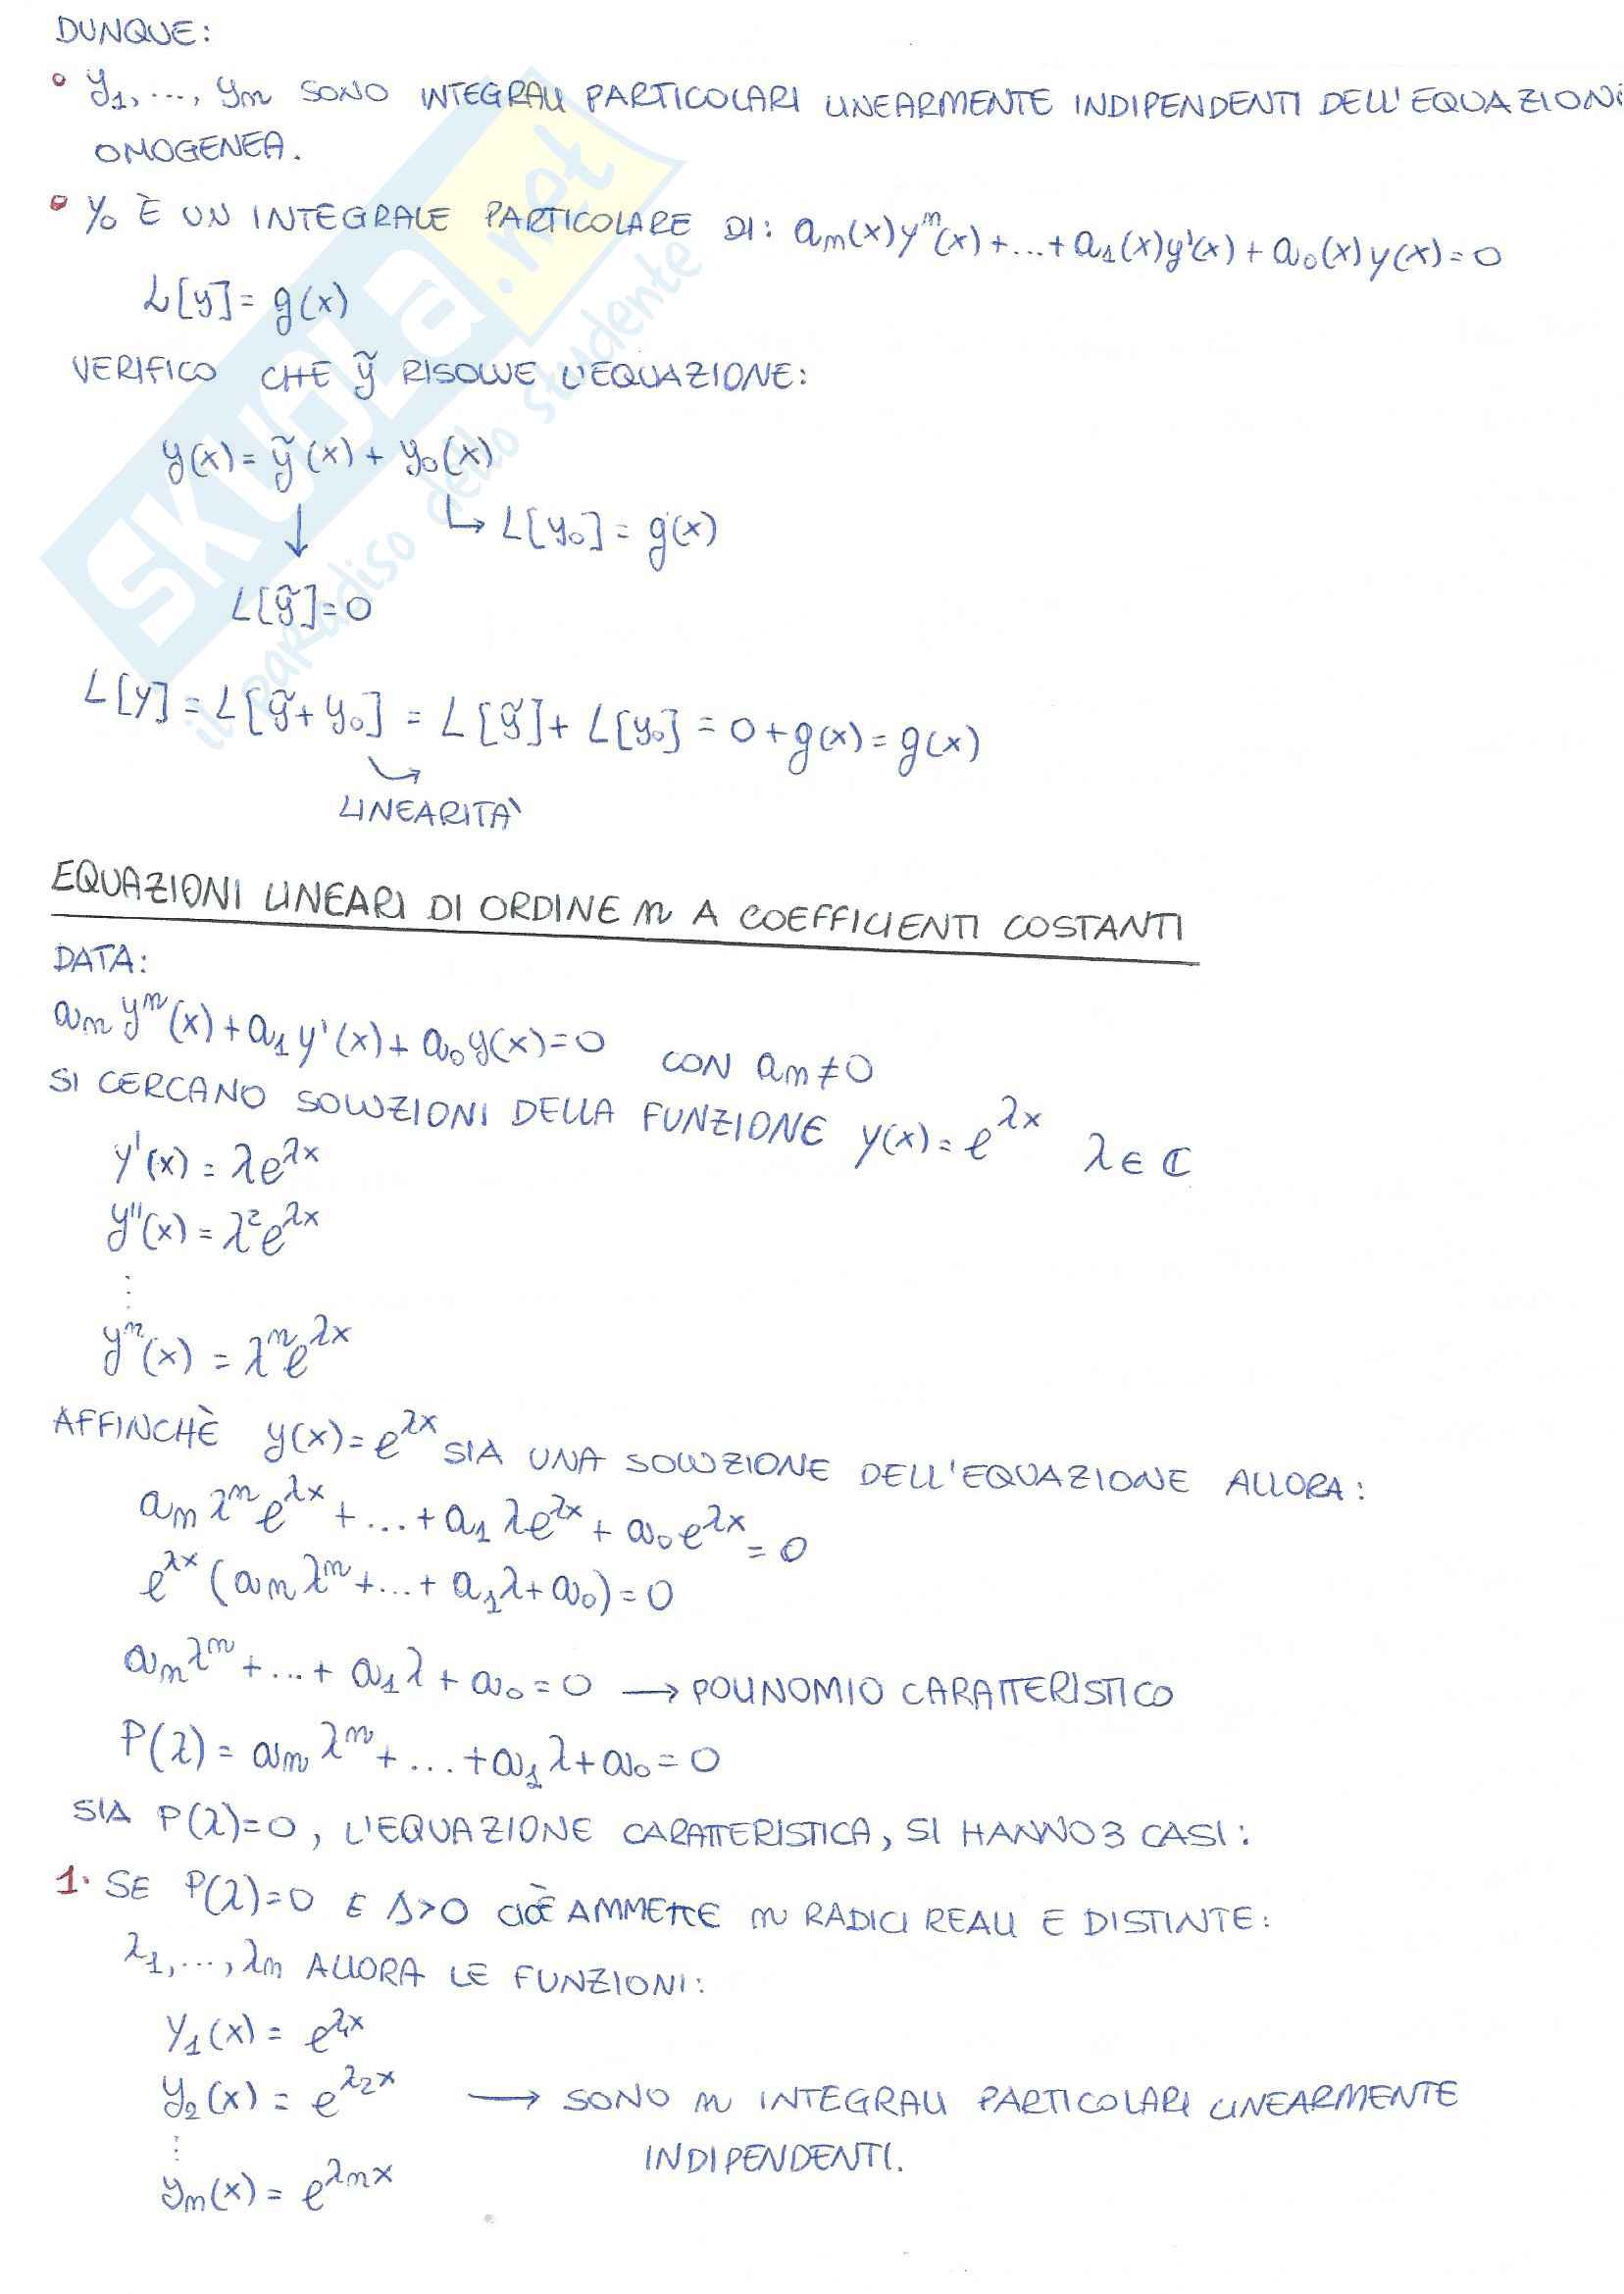 DUNQUE:
• y₁, ..., yₙ SONO INTEGRALI PARTICOLARI LINEARMENTE INDIPENDENTI DELL'EQUAZIONE
OMOGENEA.
• y₀ È UN INTEGRALE PARTICOLARE DI: aₙ(x)yⁿ(x)+...+a₁(x)y'(x)+a₀(x)y(x)=0
L[y]=g(x)
VERIFICO CHE ỹ RISOLVE L'EQUAZIONE:
y(x)=ỹ(x)+y₀(x)
↓ ↳ L[y₀]=g(x)
L[ỹ]=0
L[y]=L[ỹ+y₀]=L[ỹ]+L[y₀]=0+g(x)=g(x)
LINEARITÀ
EQUAZIONI LINEARI DI ORDINE n A COEFFICIENTI COSTANTI
DATA:
aₙyⁿ(x)+a₁y'(x)+a₀y(x)=0 CON aₙ≠0
SI CERCANO SOLUZIONI DELLA FUNZIONE y(x)=e^λx λ∈ℂ
y'(x)=λe^λx
y''(x)=λ²e^λx
⋮
yⁿ(x)=λⁿe^λx
AFFINCHÈ y(x)=e^λx SIA UNA SOLUZIONE DELL'EQUAZIONE ALLORA:
aₙλⁿe^λx+...+a₁λe^λx+a₀e^λx=0
e^λx(aₙλⁿ+...+a₁λ+a₀)=0
aₙλⁿ+...+a₁λ+a₀=0 → POLINOMIO CARATTERISTICO
P(λ)=aₙλⁿ+...+a₁λ+a₀=0
SIA P(λ)=0, L'EQUAZIONE CARATTERISTICA, SI HANNO 3 CASI:
1. SE P(λ)=0 E Δ>0 CIOÈ AMMETTE n RADICI REALI E DISTINTE:
λ₁,...,λₙ ALLORA LE FUNZIONI:
y₁(x)=e^λ₁x
y₂(x)=e^λ₂x → SONO n INTEGRALI PARTICOLARI LINEARMENTE
⋮ INDIPENDENTI.
yₙ(x)=e^λₙx
SKUOLA.net
il paradiso dello studente